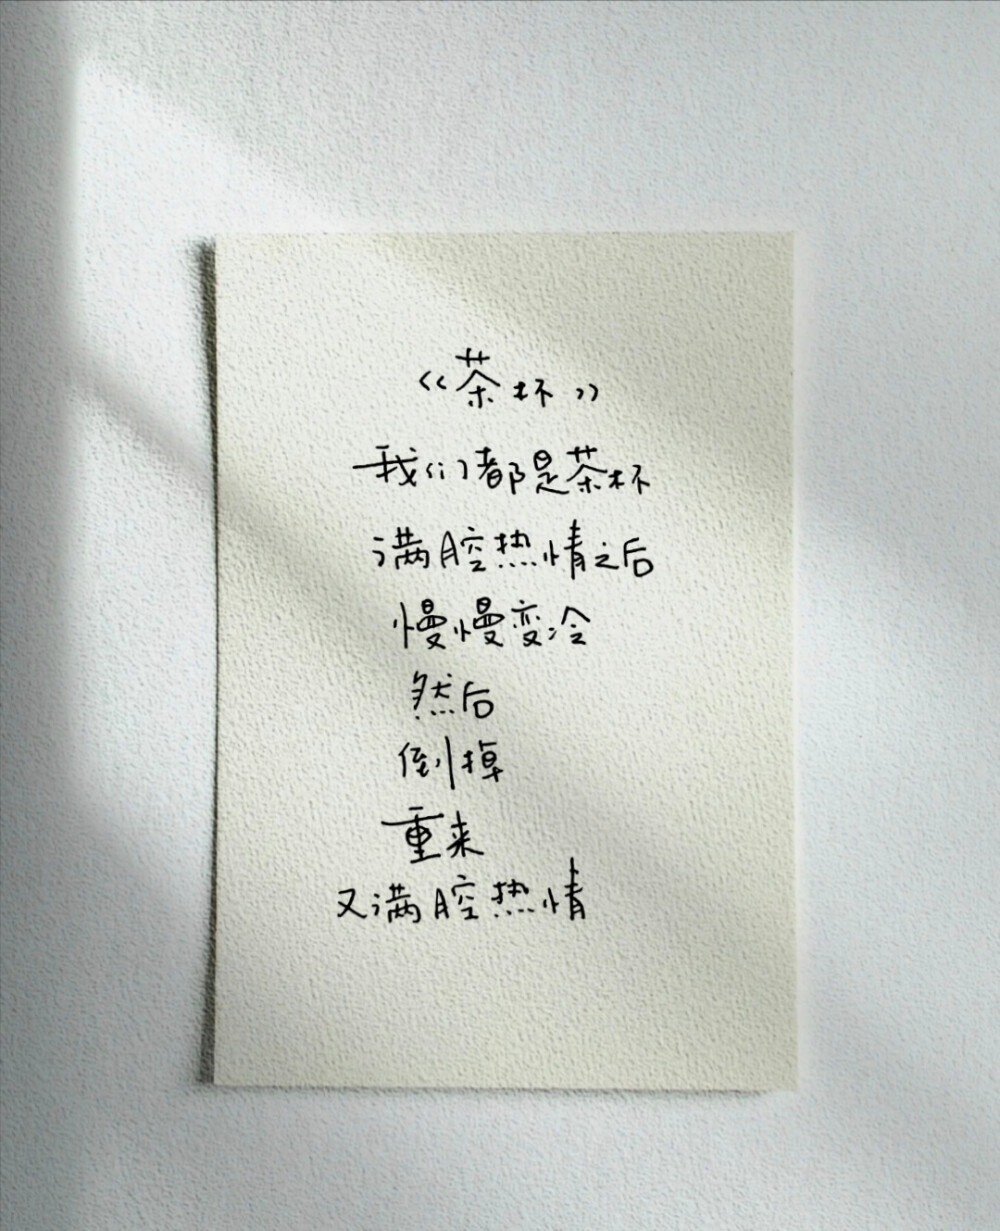 《茶杯》
我们都是茶杯
满腔热情之后
慢慢变冷
然后
倒掉
重来
又满腔热情